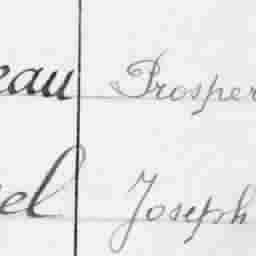 eau Prosper
el Joseph